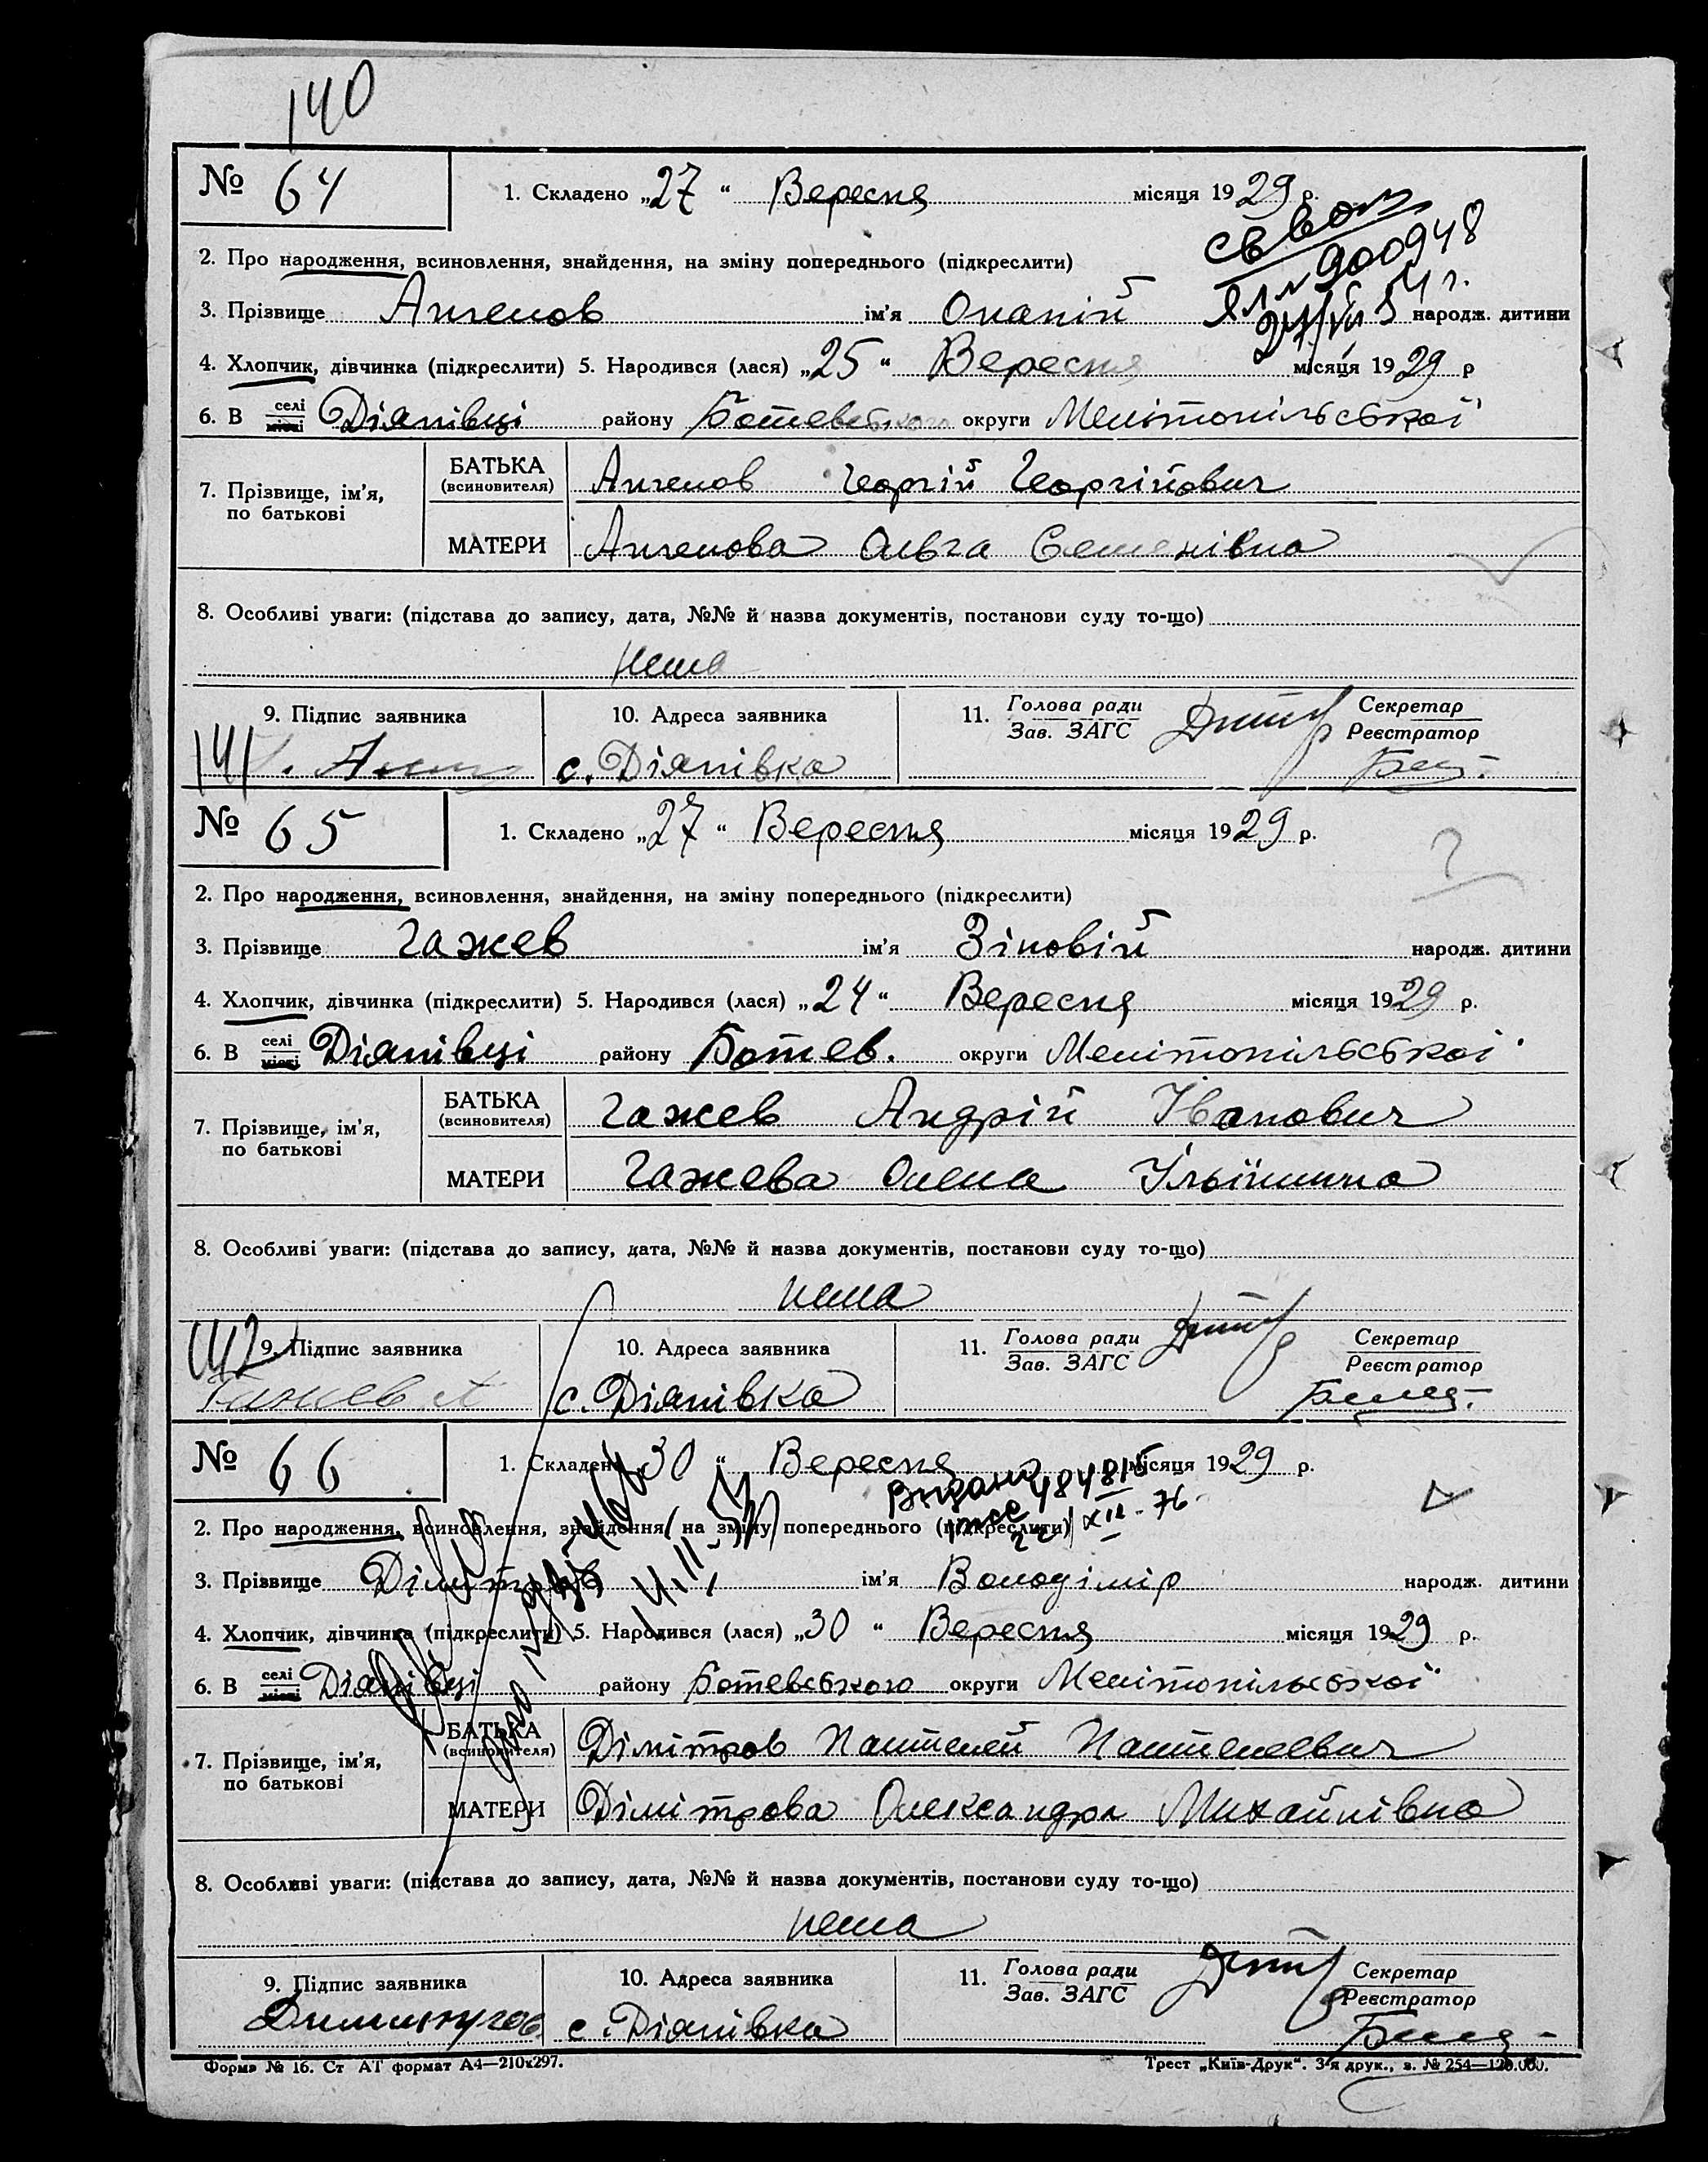 140
№ 64 1. Складено „27“ Вересня місяця 1929 р.
2. Про народження, всиновлення, знайдення, на зміну попереднього (підкреслити)
900948
3. Прізвище Ангелов ім'я Онапій народж. дитини
4. Хлопчик, дівчинка (підкреслити) 5. Народився (лася) „25“ Вересня місяця 1929 р
6. В селі місті Діянівці району Ботевського округи Мелітопільської
7. Прізвище, ім'я, по батькові БАТЬКА (всиновителя) Ангелов Георгій Георгійович
МАТЕРИ Ангелова Ольга Семенівна
8. Особливі уваги: (підстава до запису, дата, №№ й назва документів, постанови суду то-що)
нема
9. Підпис заявника 10. Адреса заявника 11. Голова ради Зав. ЗАГС Секретар Реєстратор
141 с. Діянівка
№ 65 1. Складено „27“ Вересня місяця 1929 р.
2. Про народження, всиновлення, знайдення, на зміну попереднього (підкреслити)
3. Прізвище Гажев ім'я Зіновій народж. дитини
4. Хлопчик, дівчинка (підкреслити) 5. Народився (лася) „24“ Вересня місяця 1929 р.
6. В селі місті Діянівці району Ботев. округи Мелітопільської
7. Прізвище, ім'я, по батькові БАТЬКА (всиновителя) Гажев Андрій Іванович
МАТЕРИ Гажева Олена Ільїнишна
8. Особливі уваги: (підстава до запису, дата, №№ й назва документів, постанови суду то-що)
нема
142 9. Підпис заявника 10. Адреса заявника 11. Голова ради Зав. ЗАГС Секретар Реєстратор
Гажев А с. Діянівка
№ 66 1. Складено „30“ Вересня місяця 1929 р.
Видано 484815
2. Про народження, всиновлення, знайдення, на зміну попереднього (підкреслити)
XII-76
3. Прізвище Дімітров ім'я Володімір народж. дитини
4. Хлопчик, дівчинка (підкреслити) 5. Народився (лася) „30“ Вересня місяця 1929 р.
6. В селі місті Діянівці району Ботевського округи Мелітопільської
7. Прізвище, ім'я, по батькові БАТЬКА (всиновителя) Дімітров Пантелей Пантелеевич
МАТЕРИ Дімітрова Олександра Михайлівна
8. Особливі уваги: (підстава до запису, дата, №№ й назва документів, постанови суду то-що)
нема
9. Підпис заявника 10. Адреса заявника 11. Голова ради Зав. ЗАГС Секретар Реєстратор
с. Діянівка
Форма № 16. Ст АТ формат А4—210х297. Трест „Київ-Друк“. 3-я друк., з. № 254—120.000.